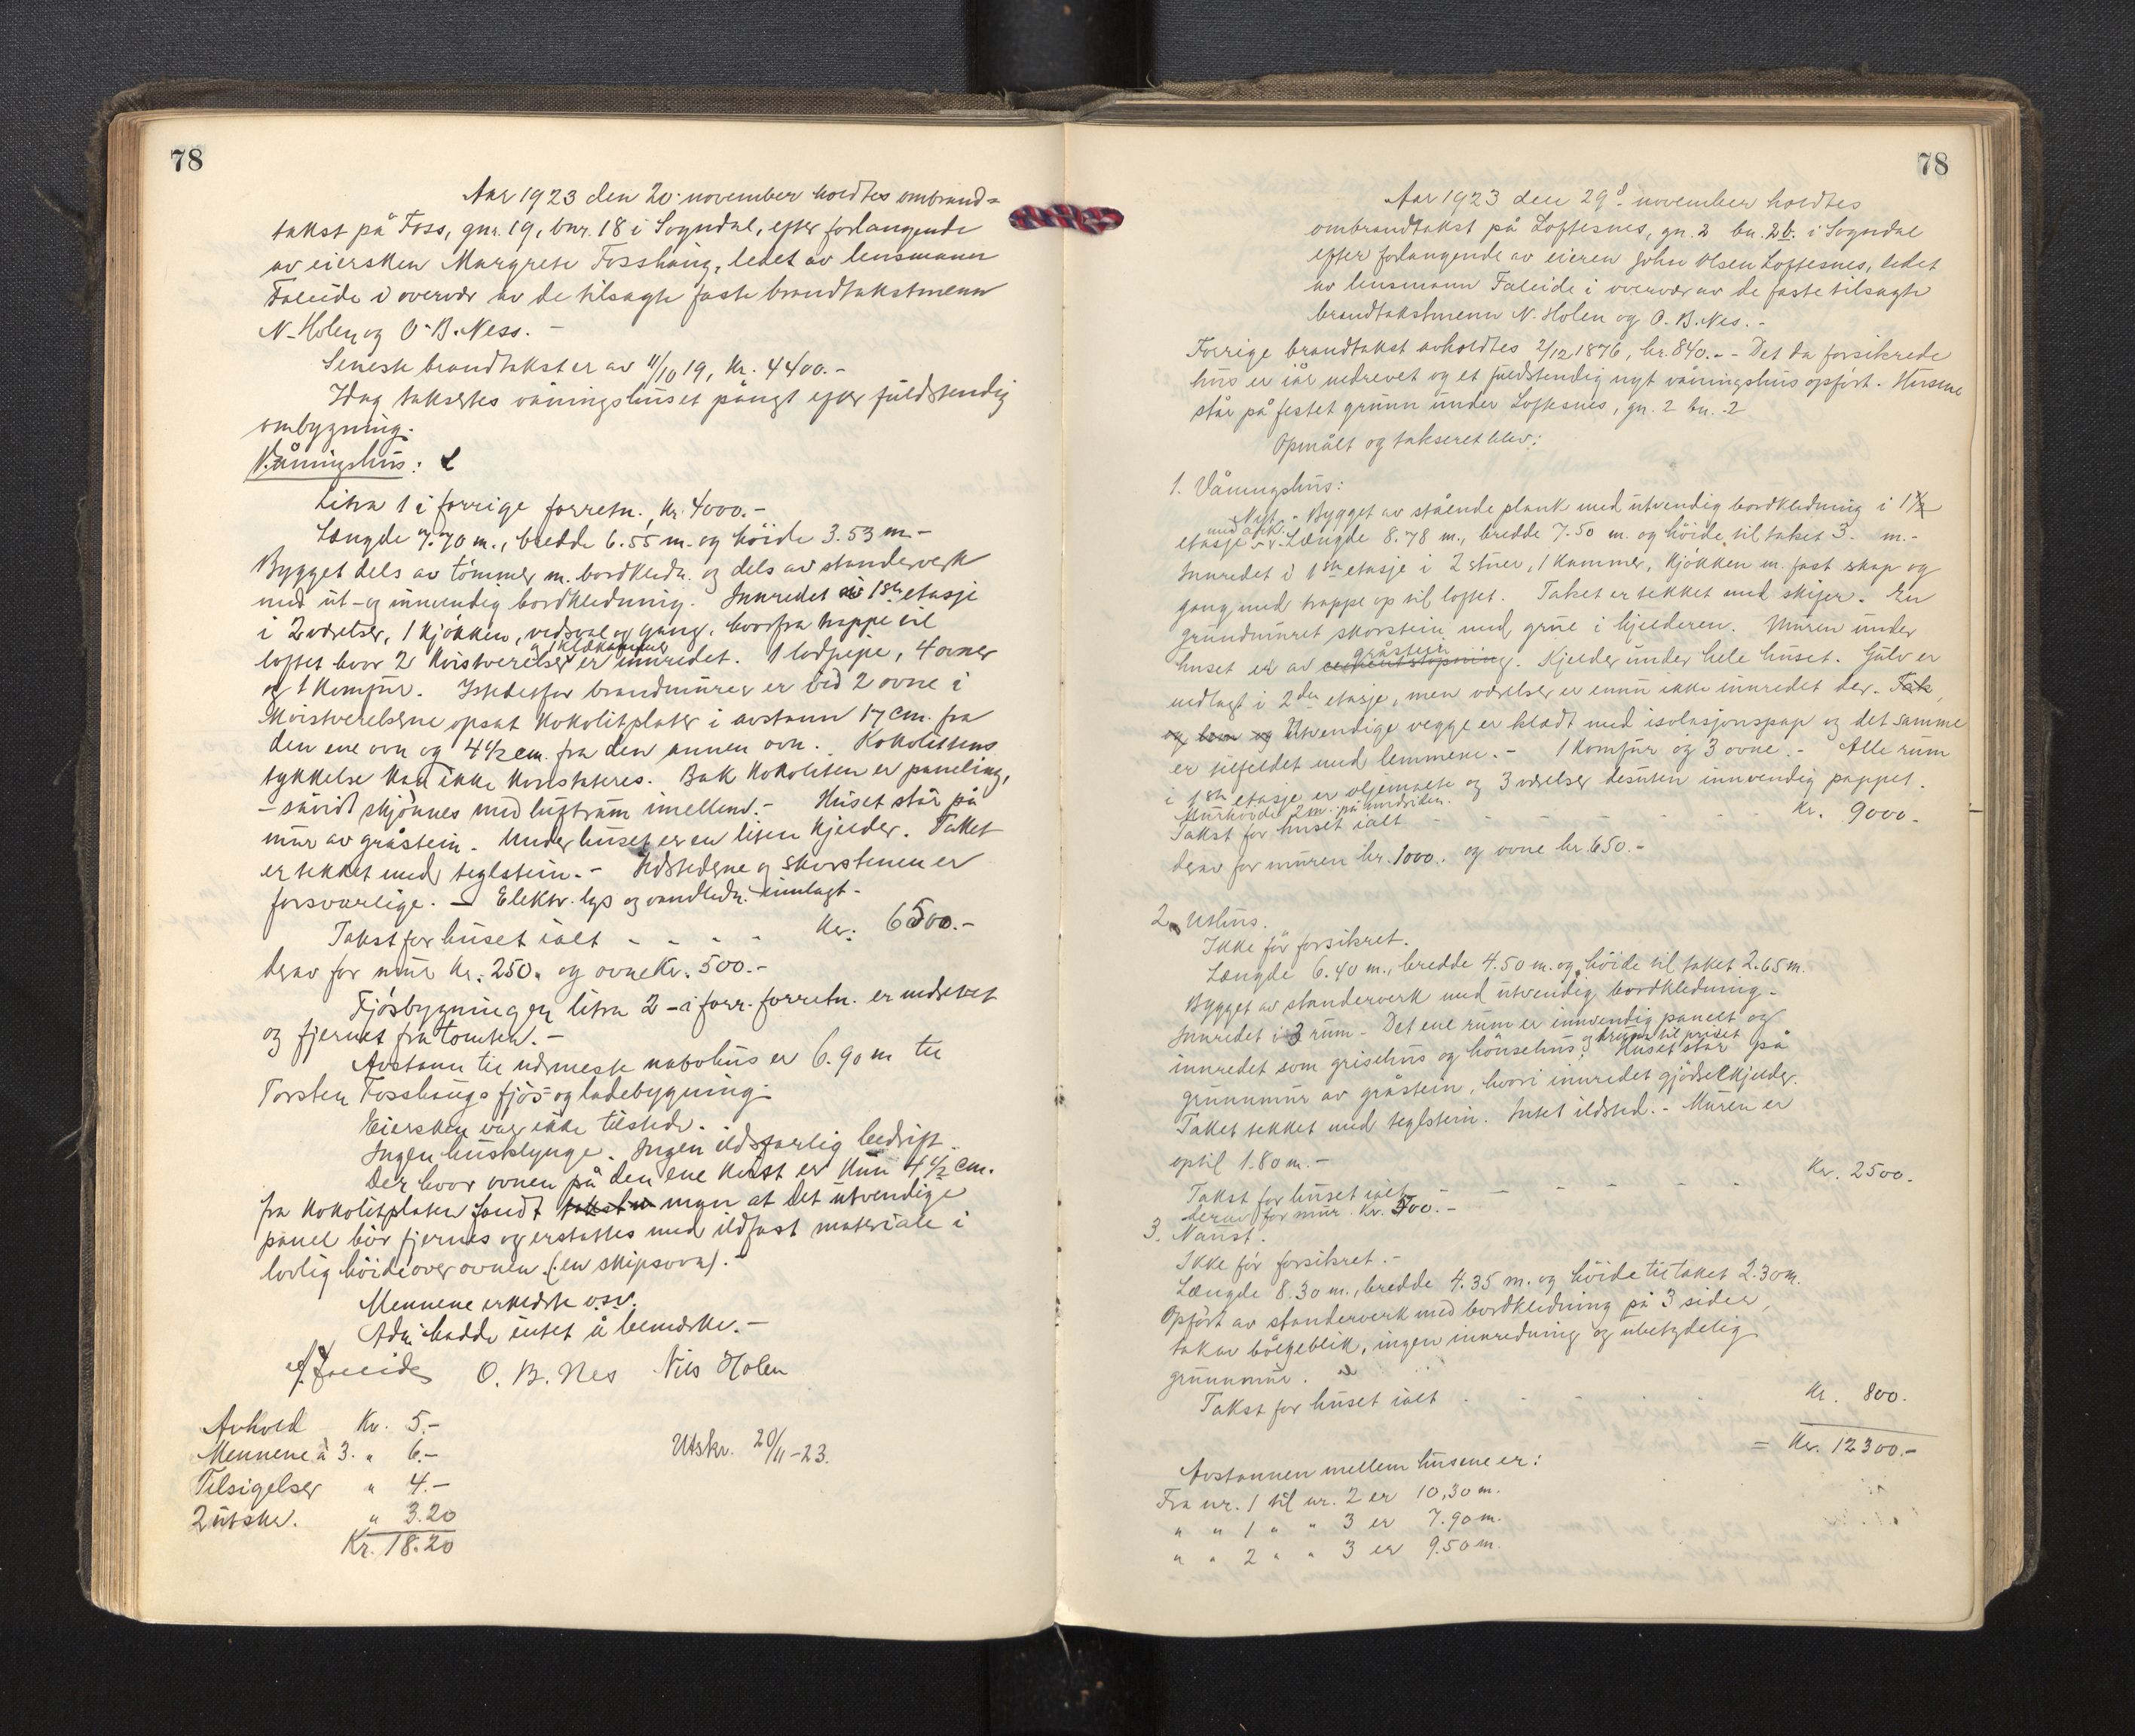 78
Aar 1923 den 20. november holdtes ombrand=
takst på Foss, gnr. 19, bnr. 18 i Sogndal, efter forlangende
av eiersken Margrete Fosshaug, ledet av lensmann
Faleide i overvær av de tilsagte faste brandtakstmenn
N. Holen og O. B. Ness. -
Seneste brandtakst er av 11/10 19, Kr. 4400.-
Idag takseres våningshuset pånyt efter fuldstendig
ombygning.
Våningshus:
Litra 1 i forrige forretn., Kr. 4000.-
Længde 7.70 m., bredde 6.55 m. og höide 3.53 m.-
Bygget dels av tömmer m. bordkledn. og dels av standerverk
med ut- og innvendig bordkledning. Innredet i 1ste etasje
i 2 værelser, 1 kjökken, vedsval og gang, hvorfra trappe til
og 1 klækammer
loftet hvor 2 kvistverelser er innredet. 1 lodpipe, 4 ovner
og 1 komfur. Istedetfor brandmurer er ved 2 ovne i
kvistverelserne opsat kokolitplater i avstann 17 cm. fra
den ene ovn og 4 1/2 cm. fra den annen ovn. Kokolittens
tykkelse kan ikke konstateres. Bak kokoliten er paneling,
- såvidt skjönnes med luftrum imellem.- Huset står på
mur av gråstein. Under huset er en liten kjelder. Taket
er tekket med teglstein.- Ildstederne og skorstenen er
forsvarlige. - Elektr. lys og vandledn. innlagt.
Takst for huset ialt - - - - Kr. 6500.-
derav for mur Kr. 250. og ovne Kr. 500.-
Fjösbygningen litra 2 - i forr. forretn. er nedrevet
og fjernet fra tomten.-
Avstann til nærmeste nabohus er 6.90 m til
Torsten Fosshaugs fjös- og ladebygning.
Eiersken var ikke tilstede.
Ingen husklynge. Ingen ildsfarlig bedrift.
Der hvor ovnen på den ene kvist er kun 4 1/2 cm.
fra kokolitplaten fandt man at det utvendige
panel bör fjernes og erstattes med ildfast materiale i
lovlig höide over ovnen. (en skipsovn).-
Mennene erklærte o.s.v.
Adm. hadde intet å bemerke.-
A. Faleide O. B. Nes Nils Holen
Avhold Kr. 5.-
Mennene à 3. " 6.-
Tilsigelser " 4.-
2 utskr. " 3.20
Kr. 18.20
Utskr. 20/11-23.
78
Aar 1923 den 29d. november holdtes
ombrandtakst på Loftesnes, gn. 2 bn. 2b. i Sogndal
efter forlangende av eieren John Olsen Loftesnes, ledet
av lensmann Faleide i overvær av de faste tilsagte
brandtakstmenn N. Holen og O. B. Nes.-
Forrige brandtakst avholdtes 2/12 1876, kr. 840.- - Det da forsikrede
hus er iår nedrevet og et fuldstendig nyt våningshus opfört. Husene
står på festet grunn under Loftesnes, gn. 2 bn. 2
Opmålt og takseret blev:
1. Våningshus:
Nyt. - Bygget av stående plank med utvendig bordkledning i 1 1/2
med ark.
etasje - Længde 8.78 m., bredde 7.50 m. og höide til taket 3. m.-
Innredet i 1ste etasje i 2 stuer, 1 kammer, kjökken m. fast skap og
gang med trappe op til loftet. Taket er tekket med skifer. En
grundmuret skorstein med grue i kjelderen. Muren under
gråstein
huset er av cementstöpning. Kjelder under hele huset. Gulv er
nedlagt i 2den etasje, men værelser er ennu ikke innredet der. Tak
Utvendige vegge er klædt med isolasjonspap og det samme
er tilfeldet med lemmene.- 1 komfur og 3 ovne.- Alle rum
i 1ste etasje er oljemalte og 3 værelser desuten innvendig pappet.
Murhöide 2 m. på nedsiden.
Takst for huset ialt - - - - Kr. 9000.-
derav for muren kr. 1000. og ovne kr. 650.-
2. Uthus.
Ikke för forsikret.
Længde 6.40 m., bredde 4.50 m. og höide til taket 2.65 m.
Bygget av standerverk med utvendig bordkledning.
Innredet i 3 rum - Det ene rum er innvendig panelt og
innredet som grisehus og hönsehus. Huset står på
grunnmur av gråstein, hvori innredet gjödselkjelder.
Taket tekket med teglstein. Intet ildsted.- Muren er
optil 1.80 m.-
Takst for huset ialt - - - - Kr. 2500.
derav for mur Kr. 500.-
3. Naust.
Ikke för forsikret.-
Længde 8.30 m., bredde 4.35 m. og höide til taket 2.30 m.
Opfört av standerverk med bordkledning på 3 sider,
takav bölgeblik, ingen innredning og ubetydelig
grunnmur.
Takst for huset ialt - - - Kr. 800.
= Kr. 12300.-
Avstannen mellem husene er:
Fra nr. 1 til nr. 2 er 10,30 m.
" " 1 " " 3 er 7.90 m.
" " 2 " " 3 er 9.50 m.